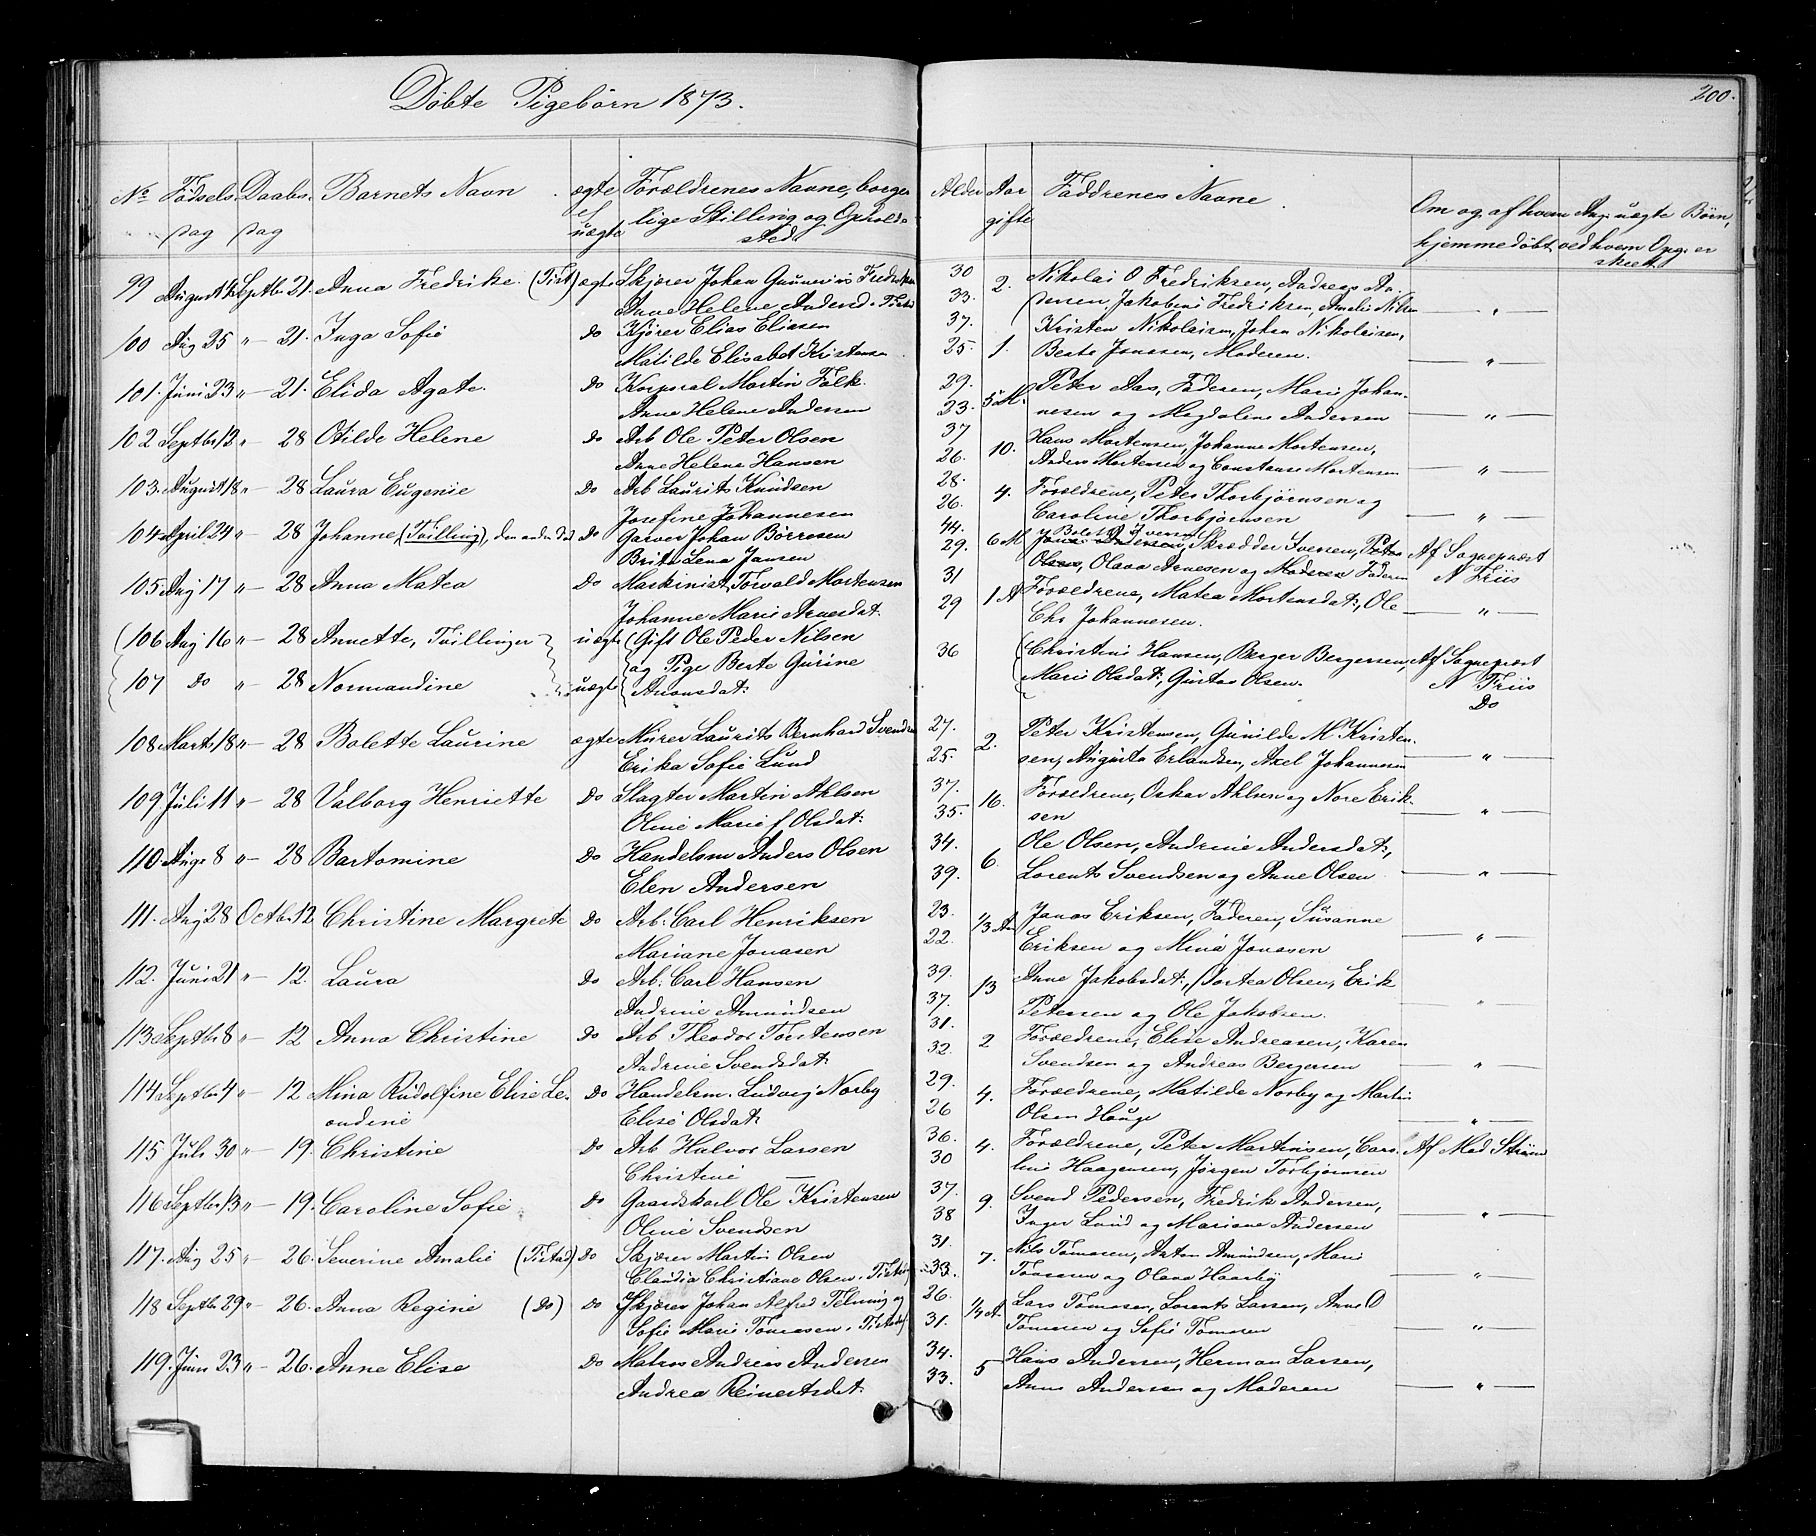 Døbte Pigebørn 1873.
200.
No Fødsels dag Daabs dag Barnets Navn ægte el uægte Forældrenes Navne, borgerlige Stilling og Opholdssted Alder Aar gifte Faddrenes Navne Om og af hvem hjemmedøbt Ang: uægte Børn, ved hvem Opg. er skeet
99 August 4 Septbr 21. Anna Fredrike (Tist) ægte Skjører Johan Gunerius Fredriksen 30 2. Nikolai O Fredriksen, Andreas An-
Anne Helene Anders d. Tistd 33. dersen, Jakobine Fredriksen, Amalie Nilsen — " —
100 Aug 25 " – 21. Inga Sofie do Kjører Elias Eliasen 37. 1. Kristen Nikolaisen, Johan Nikolaisen,
Matilde Elisabet Kristensen 25. Berte Jonassen, Moderen. — " —
101. Juni 23 " – 21. Elida Agate. do Korporal Martin Falk. 29. 5 M. Peter Aas, Faderen, Marie Johan-
Anne Helene Andersen 23. nesen og Magdaline Andersen — " —
102 Septbr 12 " – 28 Otilde Helene do Arb Ole Peter Olsen 37 10. Hans Mortensen, Johanne Mortensen,
Anne Helene Hansen 26. Anders Mortensen og Constanse Mortensen — " —
103. August 18 " – 28 Laura Eugenie do Arb Laurits Knudsen 28. 4. Forældrene, Peter Thorbjørnsen og
Josefine Johannesen 26. Caroline Thorbjørnsen — " —
104 April 24 " – 28 Johanne (Tvilling), den anden død do Garver Johan Børresen 44. 6 M Bolette Iversen, Skrædder Iversen, Peter Af Sogneprest
Brite Lena Jansen 29. Olsen, Olava Arnesen og Moderen Faderen N Friis
105 Aug 17 " – 28 Anna Matea do Maskinist Torvald Mortensen 31 1 A Forældrene, Matea Mortensdat:, Ole
Johanne Marie Arnesdat: 29 Chr Johannesen. — " —
106 Aug 16 " – 28 Annette, Tvillinger uægte Gift Ole Peder Nilsen 36 Christine Hansen, Berger Bergersen, Af Sogneprest
107 Do " – 28 Normandine uægte og Pige Berte Gurine Marie Olsdat:, Gustav Olsen. N Friis
Aronsdat: Do
108 Marts 18 " – 28 Bolette Laurine ægte Murer Laurits Bernhard Svendsen 27. 2. Peter Kristensen, Gunilde M Kristen-
Erika Sofie Lund 25. sen, Augusta Erlandsen, Axel Johannesen — " —
109 Juli 11 " – 28 Valborg Henriette do Slagter Martin Ahlsen 37. 16. Forældrene, Oskar Ahlsen og Nore Erik-
Oline Marie f Olsdat: 35. sen — " —
110 Aug. 8 " – 28 Bartomine do Handelsm Anders Olsen 34. 6. Ole Olsen, Andrine Andersdat:,
Elen Andersen 39. Lorents Svendsen og Anne Olsen — " —
111. Aug 28 Octbr. 12. Christine Margrete do Arb: Carl Henriksen 23. 1/3 Aar Jonas Eriksen, Faderen, Susanne
Mariane Jonasen 22. Eriksen og Mina Jonassen — " —
112. Juni 21 " – 12. Laura do Arb: Carl Hansen 39. 13 Anne Jakobsdat:, Dortea Olsen, Erik
Andrine Amundsen 37. Petersen og Ole Jakobsen. — " —
113 Septbr 8 " – 12 Anna Christine do Arb Theodor Torstensen 31. 2 Forældrene, Elise Andreasen, Karen
Andrine Svendsdat: 32. Svendsen og Andreas Bergersen — " —
114 Septbr 4 " – 12 Mina Rudolfine Elise Le- do Handelsm. Ludvig Norby 29. 4. Forældrene, Matilde Norby og Martin
ondine Elise Olsdat: 26 Olsen Hauge — " —
115 Juli 30 " – 19. Christine do Arb Halvor Larsen 36. 4. Forældrene, Peter Martinsen, Caro- Af Mad Strøm
Christine — 30 line Haagensen, Jørgen Torbjørnsen
116 Septbr 13 " – 19. Caroline Sofie do Gaardskarl Ole Kristensen 37. 9. Svend Pedersen, Fredrik Andersen,
Oline Svendsen 38 Inger Lund og Mariane Andersen — " —
117. Aug 25 " – 26. Severine Amalie (Tistad) do Skjører Martin Olsen 31. 7. Nils Tomasen, Anton Amundsen, Marie
Claudia Christiane Olsen. Tistad 33. Tomasen og Olava Haarby — " —
118 Septbr 29 " – 26. Anna Regine (Do) do Skjører Johan Alfred Telming og 26. 1/4 A Lars Tomasen, Lorents Larsen, Anne O
Sofie Marie Tomasen. Tistad 31. Tomasen og Sofie Tomasen — " —
119. Juni 23 " – 26. Anne Elise do Matros Andreas Andersen 34. 5 Hans Andersen, Herman Larsen,
Andrea Reinertsdat: 33. Anne Andersen og Moderen — " —